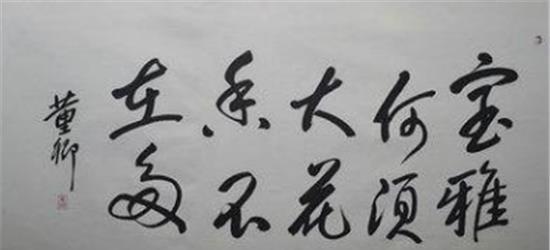 室雅
何须
大花
香不
在多
董卿